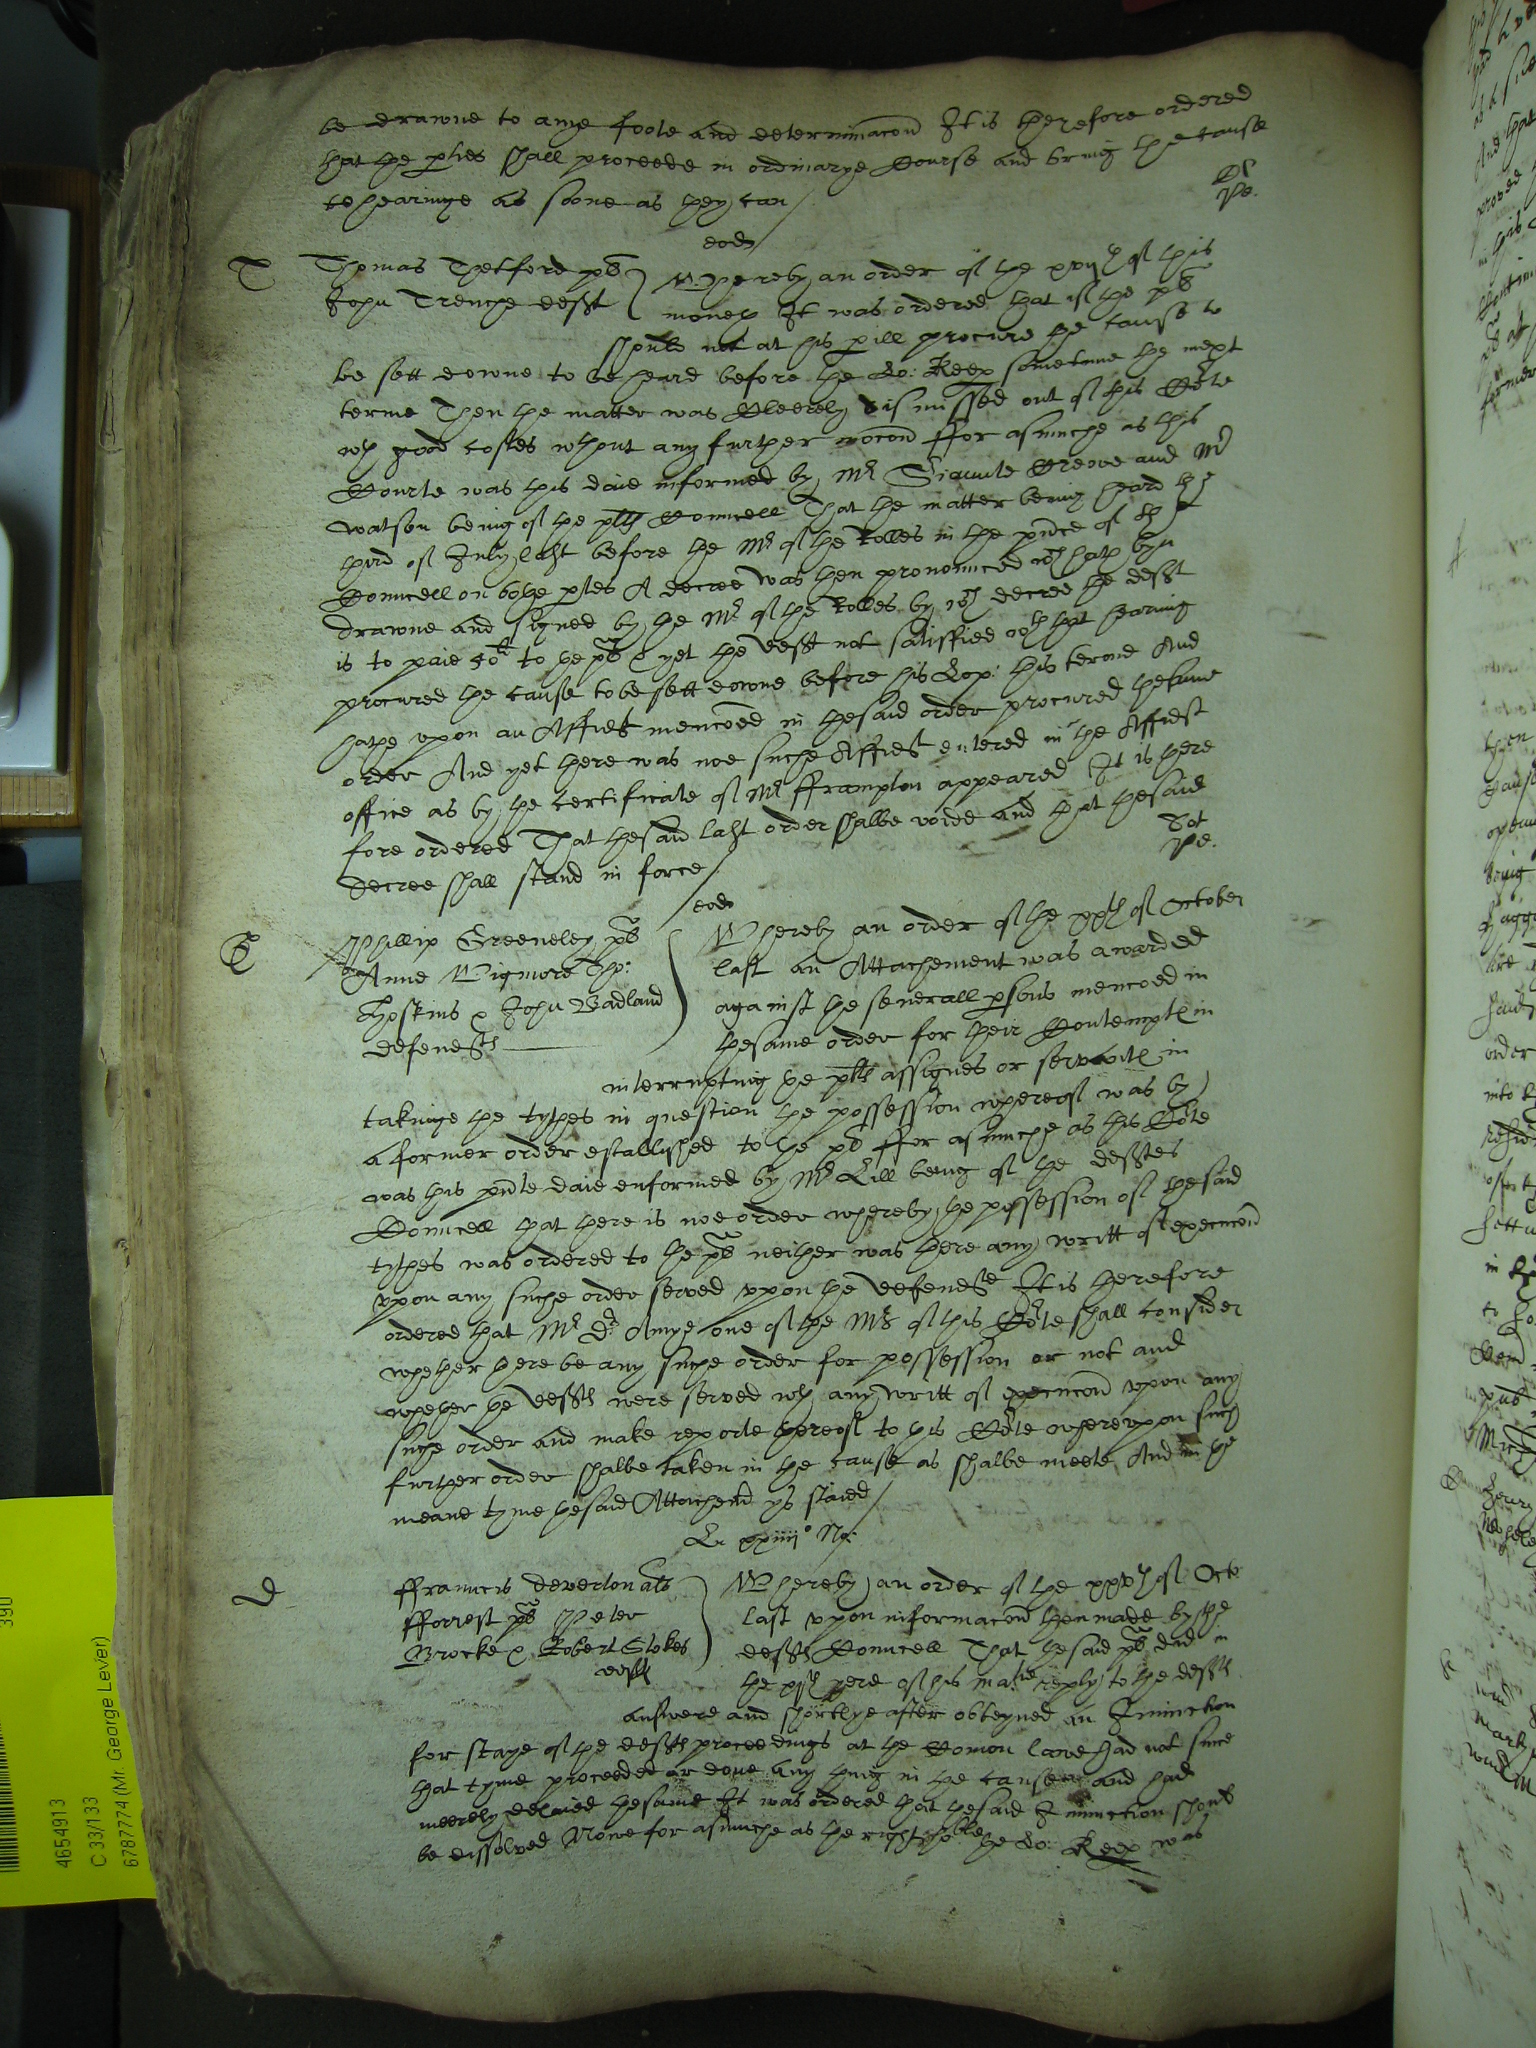 be drawne to anye foote and determinacon It is therefore ordered
that the p̱ties shall proceede in ordinarye Course and bring the cause
to hearinge as soone as they can /
eod
T
Thomas Thetforde pꝉ
John Trenche defḗt
Whereby an order of the xviiᵗʰ of this
moneth It was ordered that if the pꝉ
should not at his p̱ill procure the cause to
be sett downe to be heard before the Lo: Keep̱ sometime the next
terme Then the matter was Cleerely dismissed out of this Corte
wᵗʰ good costes wᵗʰout any further mocon ffor asmuche as this
Courte was this daie informed by Mʳ Siaunte Crewe and Mʳ
Watson being of the pltſ Councell That the matter being heard the
third of July last before the Mʳ of the Rolles in the pn̄ce of
Councell on bothe p̱tes A decree was then pronounced wᶜʰ hath byn
drawne and signed by the Mʳ of the Rolles by wᶜʰ decree the deft
is to paie 50ˡⁱ to the pꝉ & yet the deft not satisfied wᵗʰ that hearing
procured the cause to be sett downe before his Lop: this terme And
hathe upon an Affiḏt mencoed in the said order procured the same
order And yet there was noe suche Affiḏt entered in the Affidt
office as by the certificate of Mʳ fframpton appeared It is there
fore ordered That the said last order shalbe voide and that the said
decree shall stand in force /
eod
Phillip Greeneley pꝉ
Anne Wigmore Tho:
Hoskins & John Badland
defendᵗˢ
Whereby an order of the xxᵗʰ of October
last an Attachement was awarded
against the severall p̱sons mencoed in
the same order for their Contemptſ in
interrupting the pltſ assignes or servauntſ in
takinge the tythes in question the possession whereof was by
a former order established to the pꝉ ffor asmuche as this Corte
was this pn̄te daie enformed by Mʳ Lill being of the deftes
Councell that there is noe order whereby the possession of the said
tythes was ordered to the pꝉ neither was there any writt of execucon
upon any suche order served upon the defendtſ It is therefore
ordered that Mʳ Dʳ Amye one of the Mʳˢ of this Corte shall consider
whether there be any suche order for possession or not and
whether the deftſ were served wᵗʰ any writt of execucon upon any
suche order and make reporte thereof to this Corte whereupon such
further order shalbe taken in the cause as shalbe meete And in the
meane tyme the said Attachemᵗ ys staied /
xxiiii° No:
ffrauncis Deverton aꝉs
fforrest pꝉ Peter
Brocke & Robert Stokes
deftſ
Whereby an order of the xxvᵗʰ of Octo
last upon informacon then made by the
deftſ Councell That the said pꝉ did in
the yere of his maᵗⁱᵉ reply to the deftſ
answere and shortlye after obteyned an Iniunction
for staye of the deftſ proceedings at the Comon lawe had not since
that tyme proceeded or done any thing in the cause and had
meerely delaied the same It was ordered that the said Iniunction should
be dissolved Nowe for asmuche as the right hoᵇˡᵉ the Lo: Keep̱ was
390
4654913
C 33/133
6787774 (Mr. George Lever)